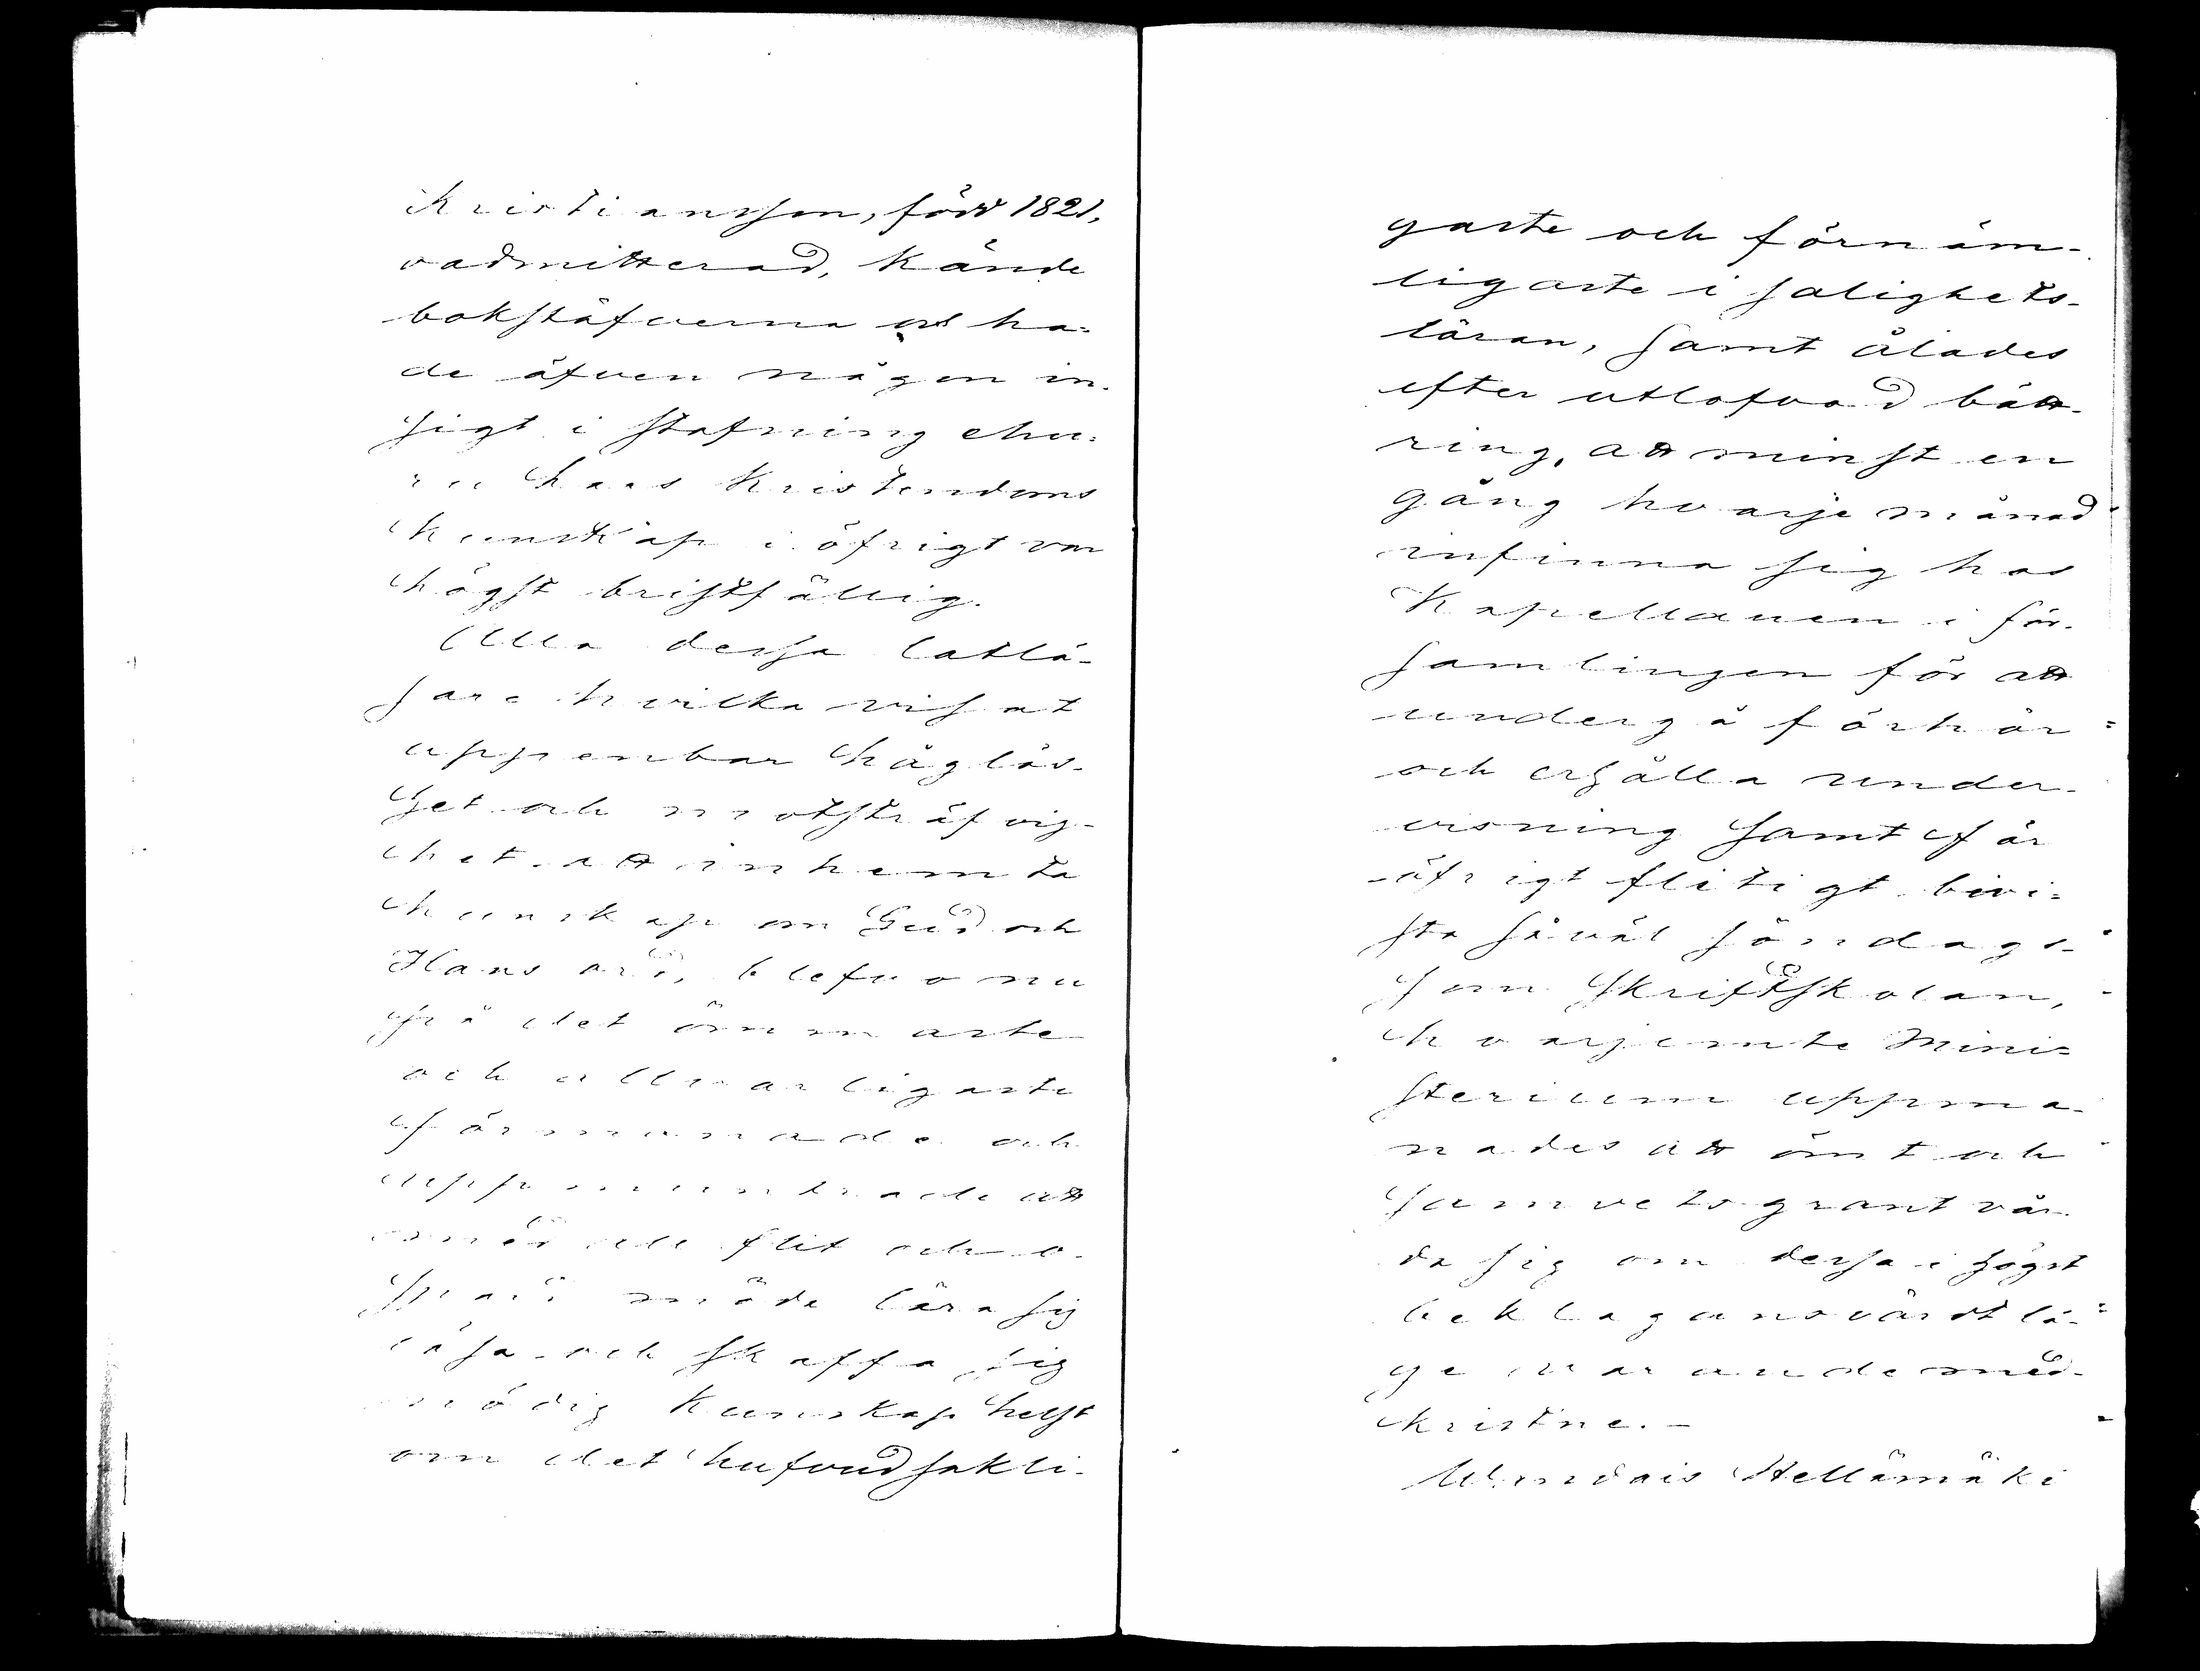 Kristiansson, född 1821,
oadmitterad, kände
bokstäfverna och ha-
de äfven någon in-
sigt i stafning ehu-
ru hans kristendoms
kunskap i öfrigt var
högst bristfällig.
Alla dessa latlä-
sare hvilka visat
uppenbar håglös-
het och motsträfvig-
het att inhemta
kunskap om Gud och
Hans ord, blefvo nu
på det ömmaste
och allvarligaste
förmanade och
uppmuntrade att
med all flit och o-
spard möda lära sig
läsa och skaffa sig
nödig kunskap helst
om det hufvudsakli-
gaste och förnäm-
ligaste i salighets-
läran, samt ålades
efter utlofvad bätt-
ring, att minst en
gång hvarje månad
infinna sig hos
Kapellanen i för-
samlingen för att
undergå förhör
och erhålla under-
visning samt för
öfrigt flitigt bivi-
sta såväl söndags-
som skriftskolan,
hvarjemte Mini-
sterium uppma-
nades att ömt och
samvetsgrant vår-
da sig om dessa i högst
beklagansvärdt lä-
ge varande med-
kristne. -
Hellämäki